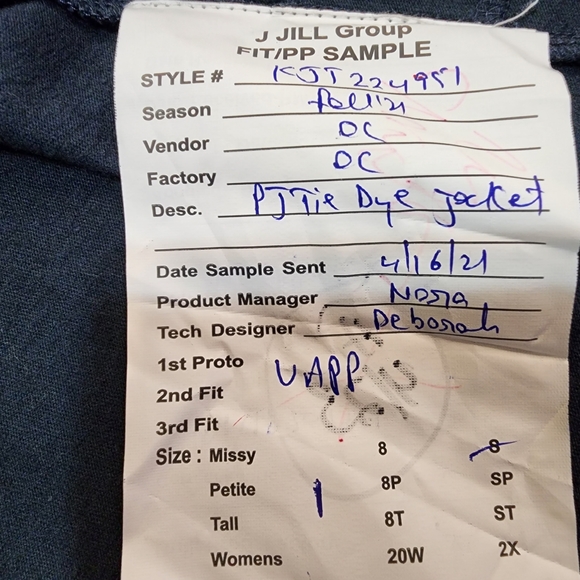 J JILL Group
FIT/PP SAMPLE
STYLE # KJT224951
Season fall'21
Vendor DC
Factory DC
Desc. PJ Tie Dye Jacket
Date Sample Sent 4/16/21
Product Manager Nosra
Tech Designer Deborah
1st Proto
UAPP
2nd Fit
3rd Fit
Size : Missy 8 S
Petite 8P SP
Tall 8T ST
Womens 20W 2X